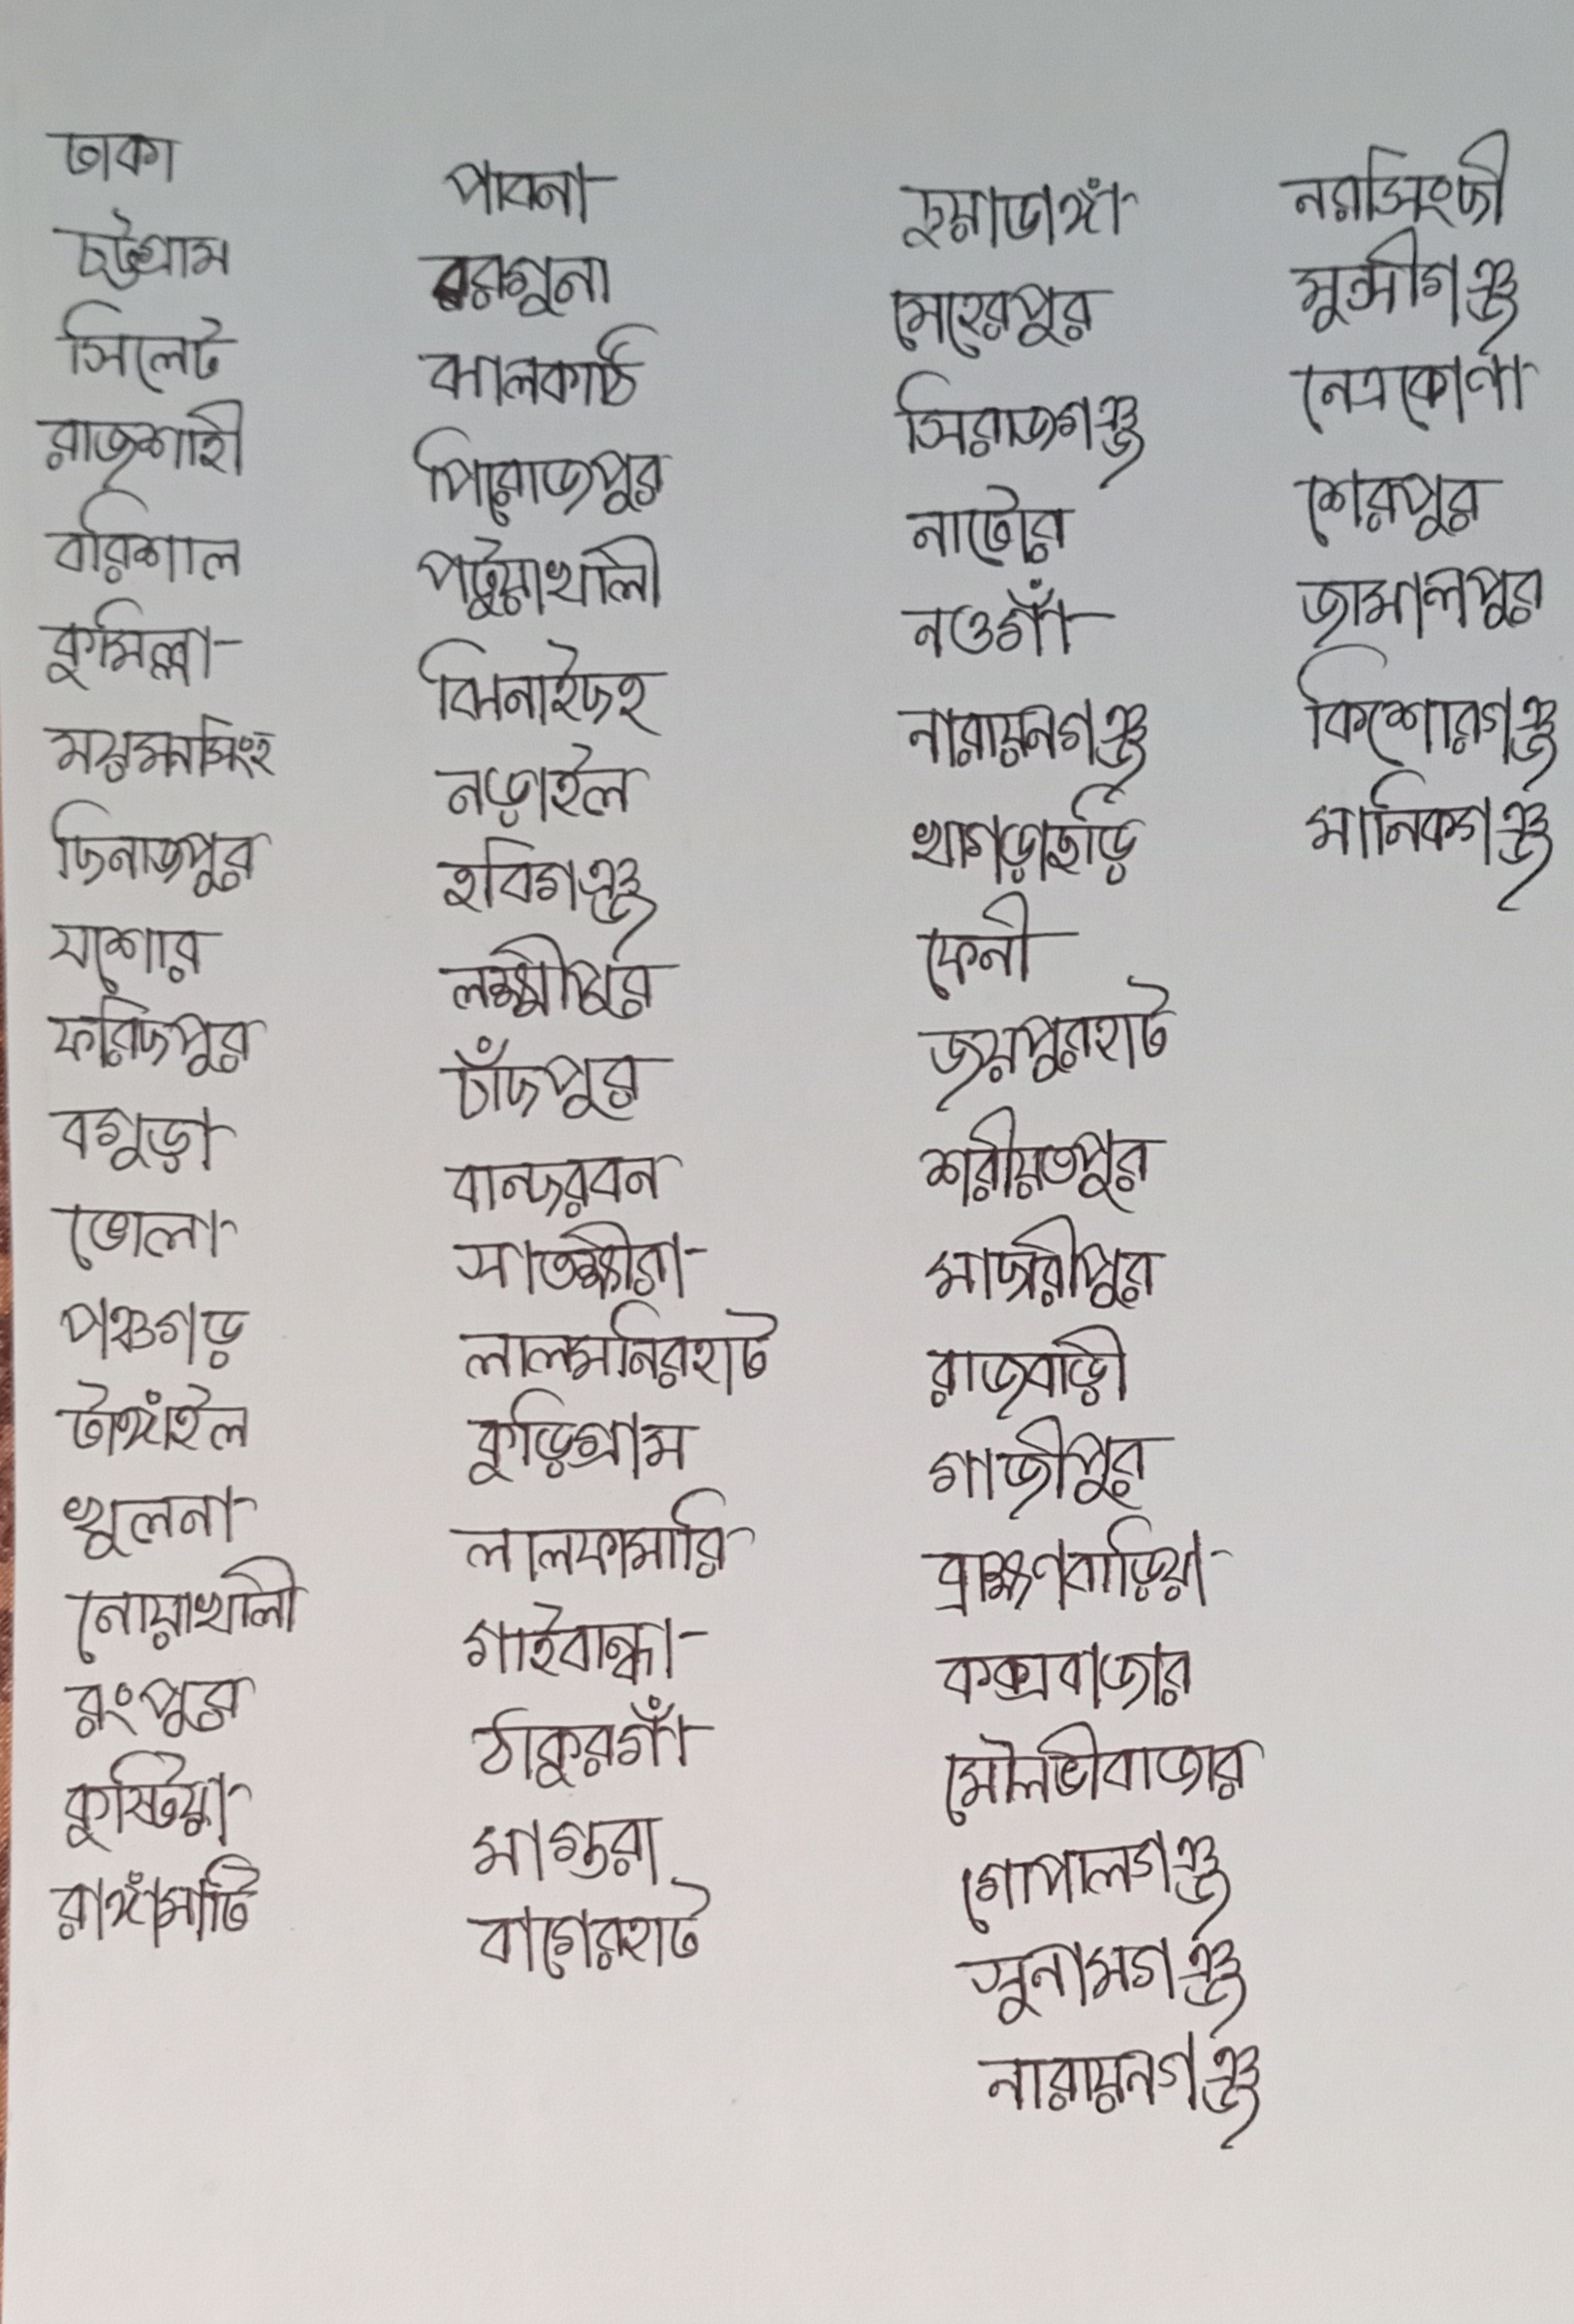 ঢাকা
চট্টগ্রাম
সিলেট
রাজশাহী
বরিশাল
কুমিল্লা
ময়মনসিংহ
দিনাজপুর
যশোর
ফরিদপুর
বগুড়া
ভোলা
পঞ্চগড়
টাঙ্গাইল
খুলনা
নোয়াখালী
রংপুর
কুষ্টিয়া
রাঙ্গামাটি
পাবনা
বরগুনা
ঝালকাঠি
পিরোজপুর
পটুয়াখালী
ঝিনাইদহ
নড়াইল
হবিগঞ্জ
লক্ষ্মীপুর
চাঁদপুর
বান্দরবন
সাতক্ষীরা
লালমনিরহাট
কুড়িগ্রাম
লালফামারি
গাইবান্ধা
ঠাকুরগাঁ
মাগুরা
বাগেরহাট
চুয়াডাঙ্গা
মেহেরপুর
সিরাজগঞ্জ
নাটোর
নওগাঁ
নারায়নগঞ্জ
খাগড়াছড়ি
ফেনী
জয়পুরহাট
শরীয়তপুর
মাদারীপুর
রাজবাড়ী
গাজীপুর
ব্রাহ্মণবাড়িয়া
কক্সবাজার
মৌলভীবাজার
গোপালগঞ্জ
সুনামগঞ্জ
নারায়নগঞ্জ
নরসিংদী
মুন্সীগঞ্জ
নেত্রকোণা
শেরপুর
জামালপুর
কিশোরগঞ্জ
মানিকগঞ্জ